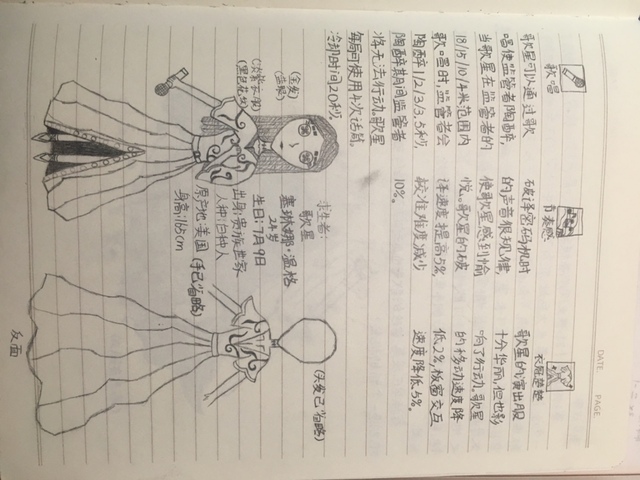 DATE
PAGE
歌唱
歌星可以通过歌
唱使监管者陶醉,
当歌星在监管者的
18/15/10/4米范围内
歌唱时,监管者会
陶醉1/2/3/3.5秒,
陶醉期间监管者
将无法行动。歌星
每局可使用4次话筒,
冷却时间20秒。
节奏感
破译密码机时
的声音很规律,
使歌星感到愉
悦。歌星的破
译速度提高5%
校准难度减少
10%。
衣冠楚楚
歌星的演出服
十分华丽,但也影
响了行动。歌星
的移动速度降
低2%板窗交互
速度降低5%。
(金发)
(蓝眼)
(黑色花纹)
求生者:
歌星
塞琳娜·温格
24岁
生日:7月9日
出身:贵族世家
人种:白种人
原产地:美国(手已省略)
身高:165cm
(头发已省略)
反面